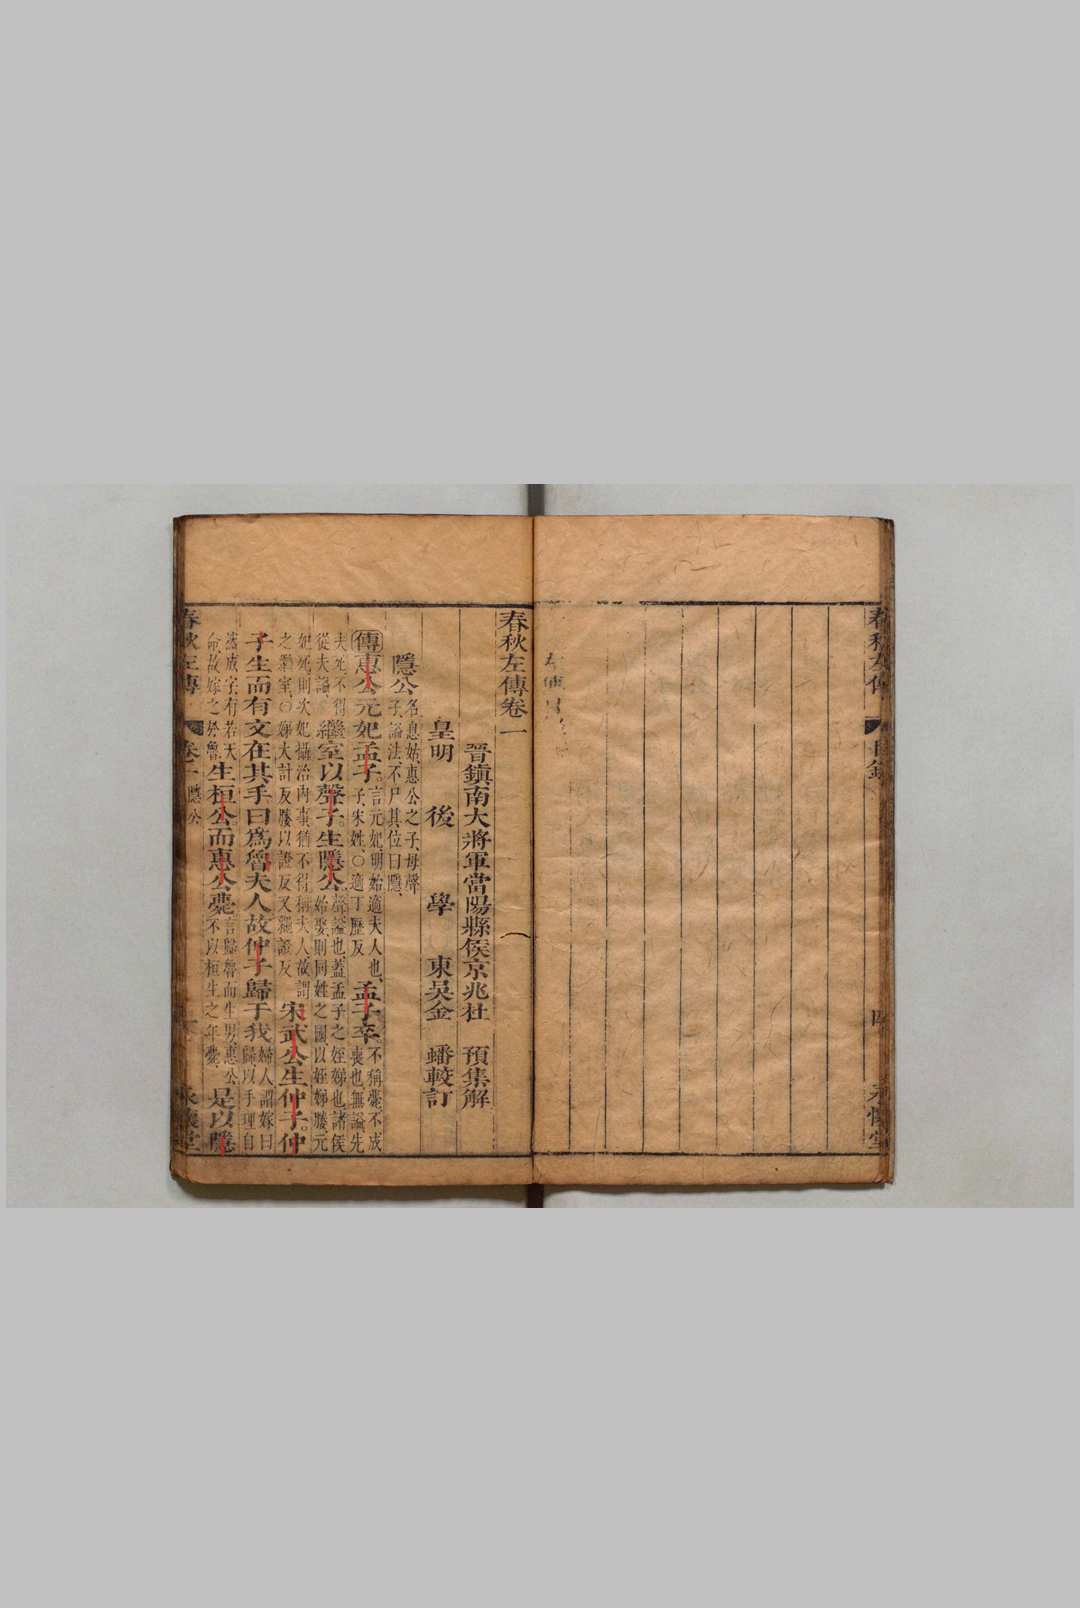 春秋左傳
目錄
四
永懷堂
春秋左傳卷一
晉鎮南大將軍當陽縣侯京兆杜 預集解
皇明 後 學 東吳金 蟠較訂
隱公名息姑惠公之子母聲
子謚法不尸其位曰隱
傳惠公元妃孟子言元妃明始適夫人也
子宋姓○適丁歷反孟子卒不稱薨不成
喪也無謚先
夫死不得
從夫謚繼室以聲子生隱公聲謚也蓋孟子之姪娣也諸侯
始娶則同姓之國以姪娣媵元
妃死則次妃攝治內事猶不得稱夫人故謂
之繼室○娣大計反媵以證反又繩證反宋武公生仲子仲
子生而有文在其手曰為魯夫人故仲子歸于我婦人謂嫁曰
歸以手理自
然成字有若天
命故嫁之於魯生桓公而惠公薨言歸魯而生男惠公
不以桓生之年薨是以隱
春秋左傳
卷一 隱公
一
永懷堂